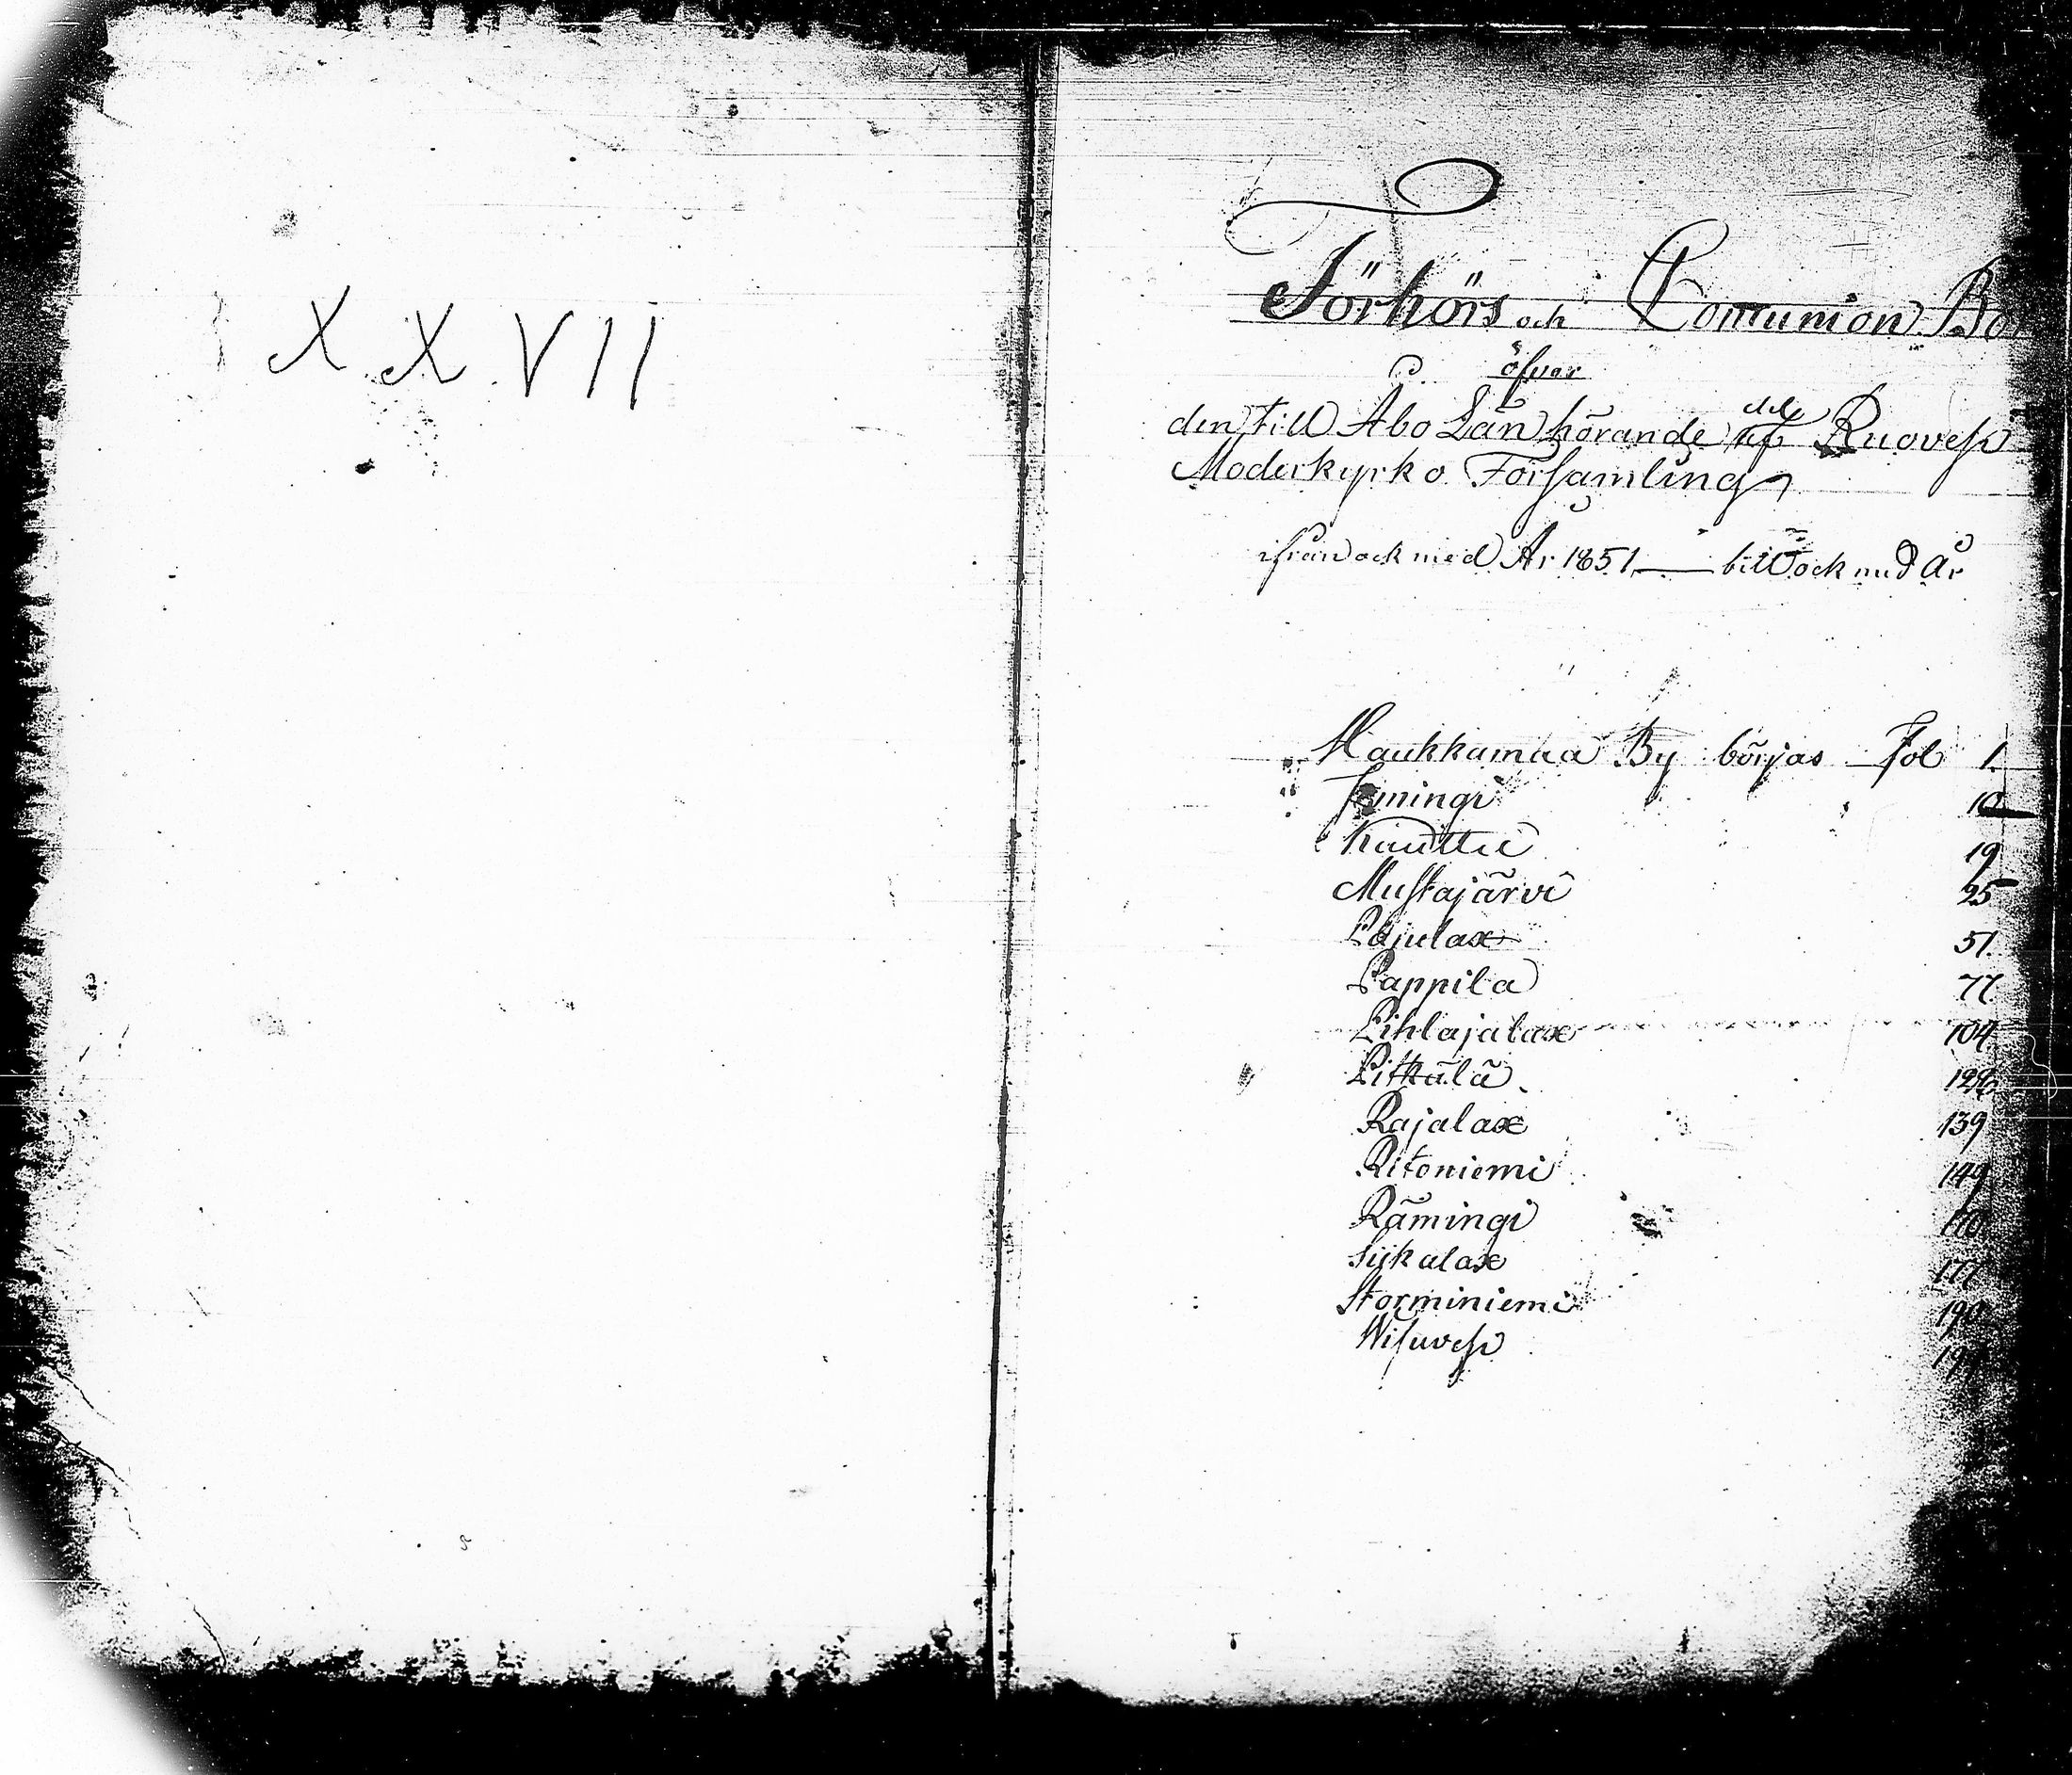 XXVII
Förhörs och Communion Bo
öfver
den till Åbo Län hörande del af Ruovesi
Moderkyrko Församling
ifrån och med År 1851 — till och med År
Haukkamaa By börjas Fol 1.
Jäminği 10
Kauttu 19
Mustajärvi 25
Pajulax 51.
Pappila 77
Pihlajalax 104
Pitkälä 126
Rajalax 139
Ritoniemi 149
Rämingi 170
Siikalax 177
Storminiemi 190
Wisuvesi